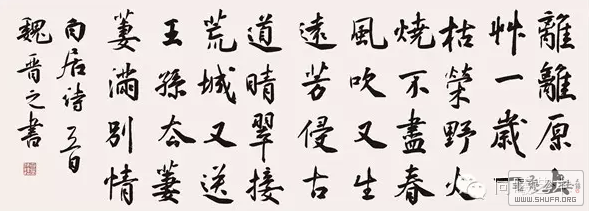 離離原上
艸一歲一
枯榮野火
燒不盡春
風吹又生
遠芳侵古
道晴翠接
荒城又送
王孫去萋
萋滿別情
白居诗
魏晋之書
WWW.SHUFA.ORG